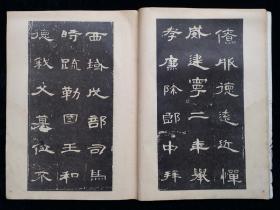 僚服德遠近憚
威建寧二年舉
孝廉除郎中拜
西域戊部司馬
時疏勒國王和
德弒父篡位不